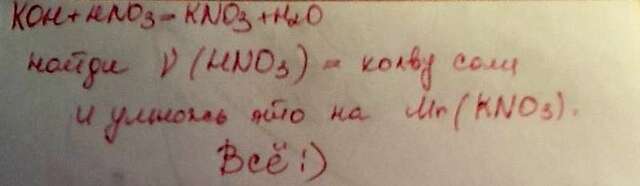 KOH + HNO3 = KNO3 + H2O
найди ν (HNO3) = колву соли
и умножь это на Mr (KNO3).
Всё :)